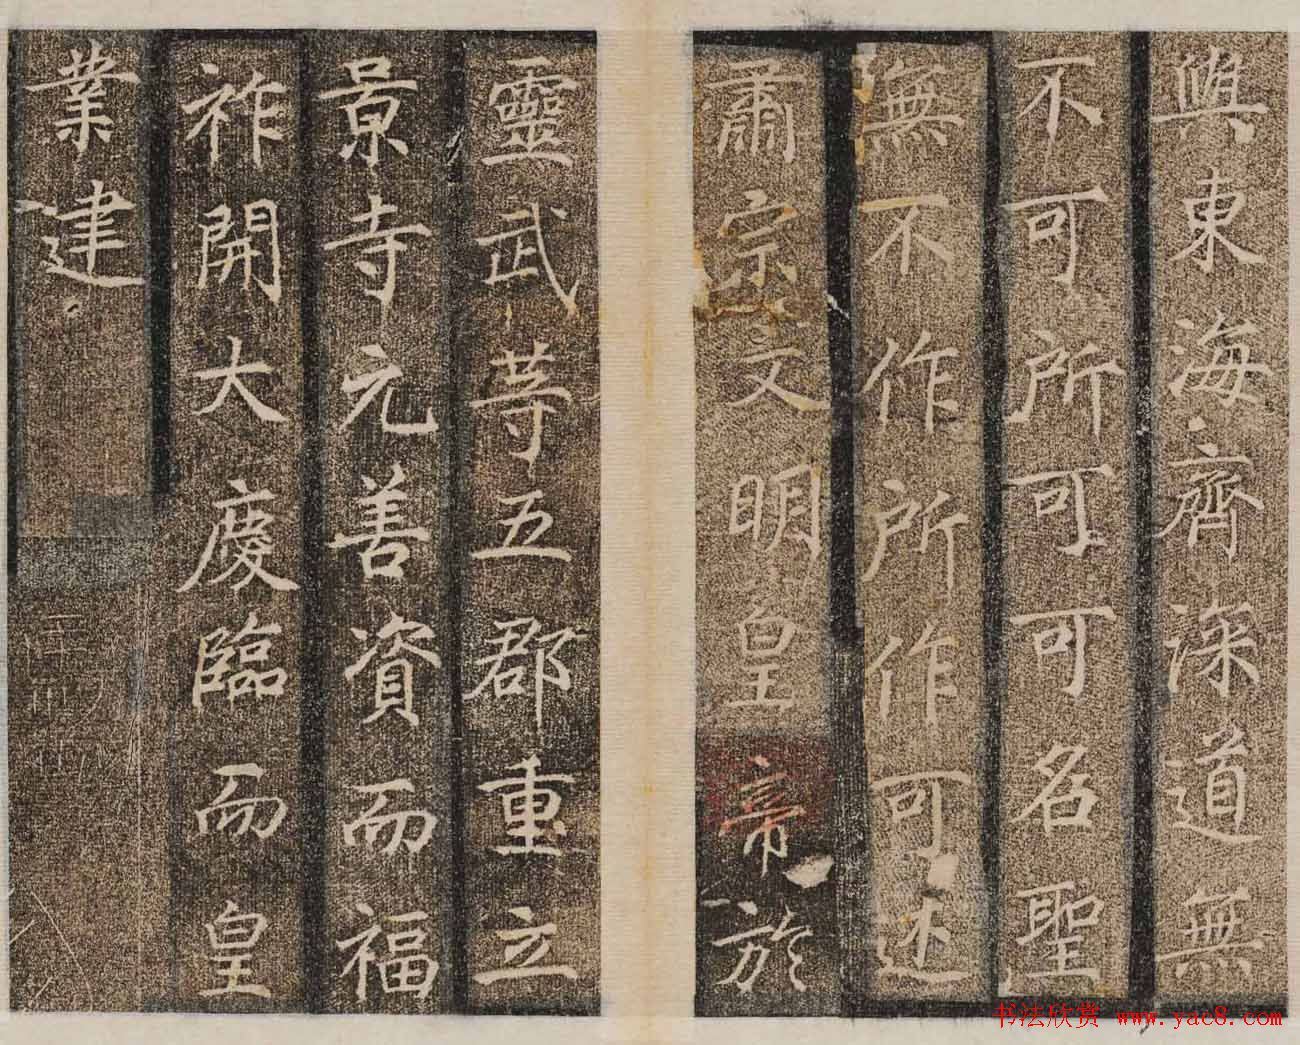 與東海齊深道無
不可所可可名聖
無不作所作可述
肅宗文明皇帝於
靈武等五郡重立
景寺元善資而福
祚開大慶臨而皇
業建
书法欣赏 www.yac8.com